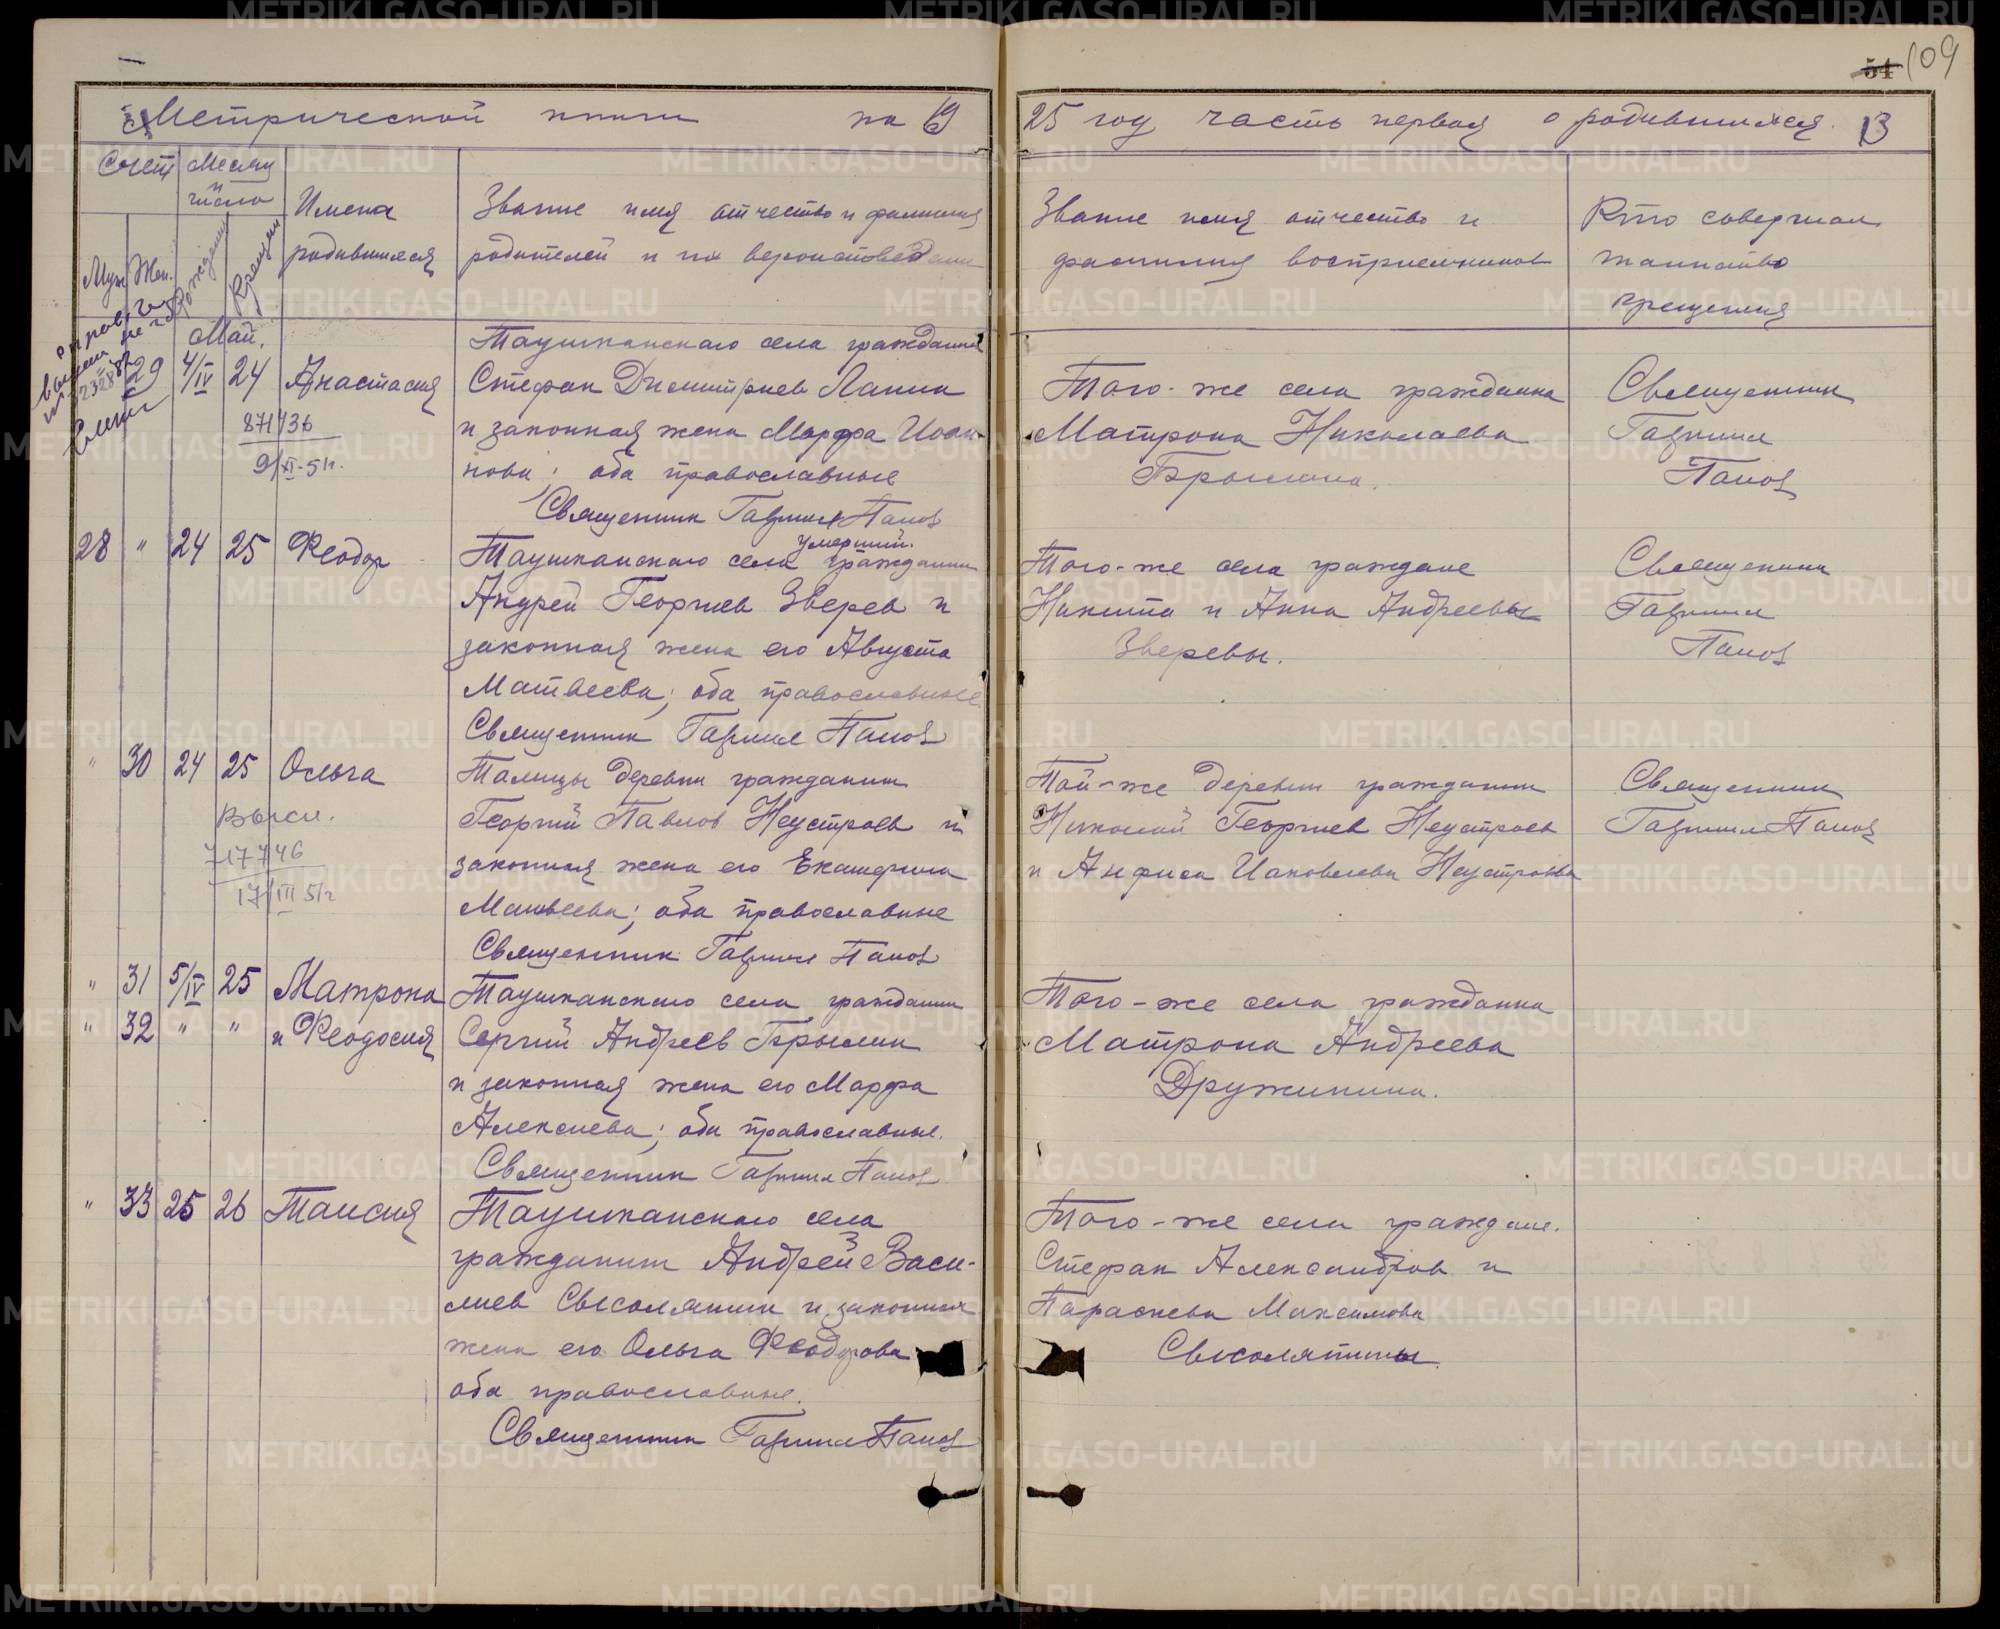 54 109
Метрической книги на 19
25 год часть первая о родившихся. 13
Счет Месяц
и
число
Имена
родившихся
Звание имя отчество и фамилия
родителей и их вероисповедание
Муж Жен.
Рождения
Крещен
Звание имя отчество и
фамилия восприемников
Кто совершал
таинство
крещения
Май.
29 4/IV 24 Анастасия
871736
9/XI-51г.
Таушканского села гражданин
Стефан Димитриев Лапин
и законная жена Марфа Иоан-
нова; оба православные
Священник Гавриил Попов
Того-же села гражданка
Матрона Николаева
Брылина.
Священник
Гавриил
Попов
28 " 24 25 Феодор
умерший.
Таушканского села гражданин
Андрей Георгиев Зверев и
законная жена его Августа
Матвеева; оба православные
Священник Гавриил Попов
Того-же села граждане
Никита и Анна Андреевы
Зверевы.
Священник
Гавриил
Попов
" 30 24 25 Ольга
Высл.
717746
17/III 51г
Талицы деревни гражданин
Георгий Павлов Неустроев и
законная жена его Екатерина
Матвеева; оба православные
Священник Гавриил Попов
Той-же деревни гражданин
Николай Георгиев Неустроев
и Анфиса Иаковлева Неустроева
Священник
Гавриил Попов
" 31 5/IV 25 Матрона
" 32 " " и Феодосия
Таушканского села гражданин
Сергий Андреев Брылин
и законная жена его Марфа
Алексиева; оба православные.
Священник Гавриил Попов
Того-же села гражданка
Матрона Андреева
Дружинина.
" 33 25 26 Таисия
Таушканского села
гражданин Андрей Васи-
лиев Свсолятин и законная
жена его Ольга Феодорова
оба православные.
Священник Гавриил Попов
Того-же села граждане.
Стефан Александров и
Параскева Максимова
METRIKI.GASO-URAL.RU